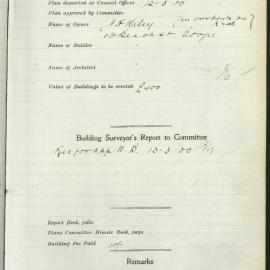 Plan deposited at Council Offices 12-3-20
Plan approved by Committee
Name of Owner
Beach st Coogee
Name of Builder
Name of Architect
Value of Buildings to be erected £400
Building Surveyor's Report to Committee
13-3-20
Report Book, folio
Plans Committee Minute Book, page
Building Fee Paid 10/-
Remarks